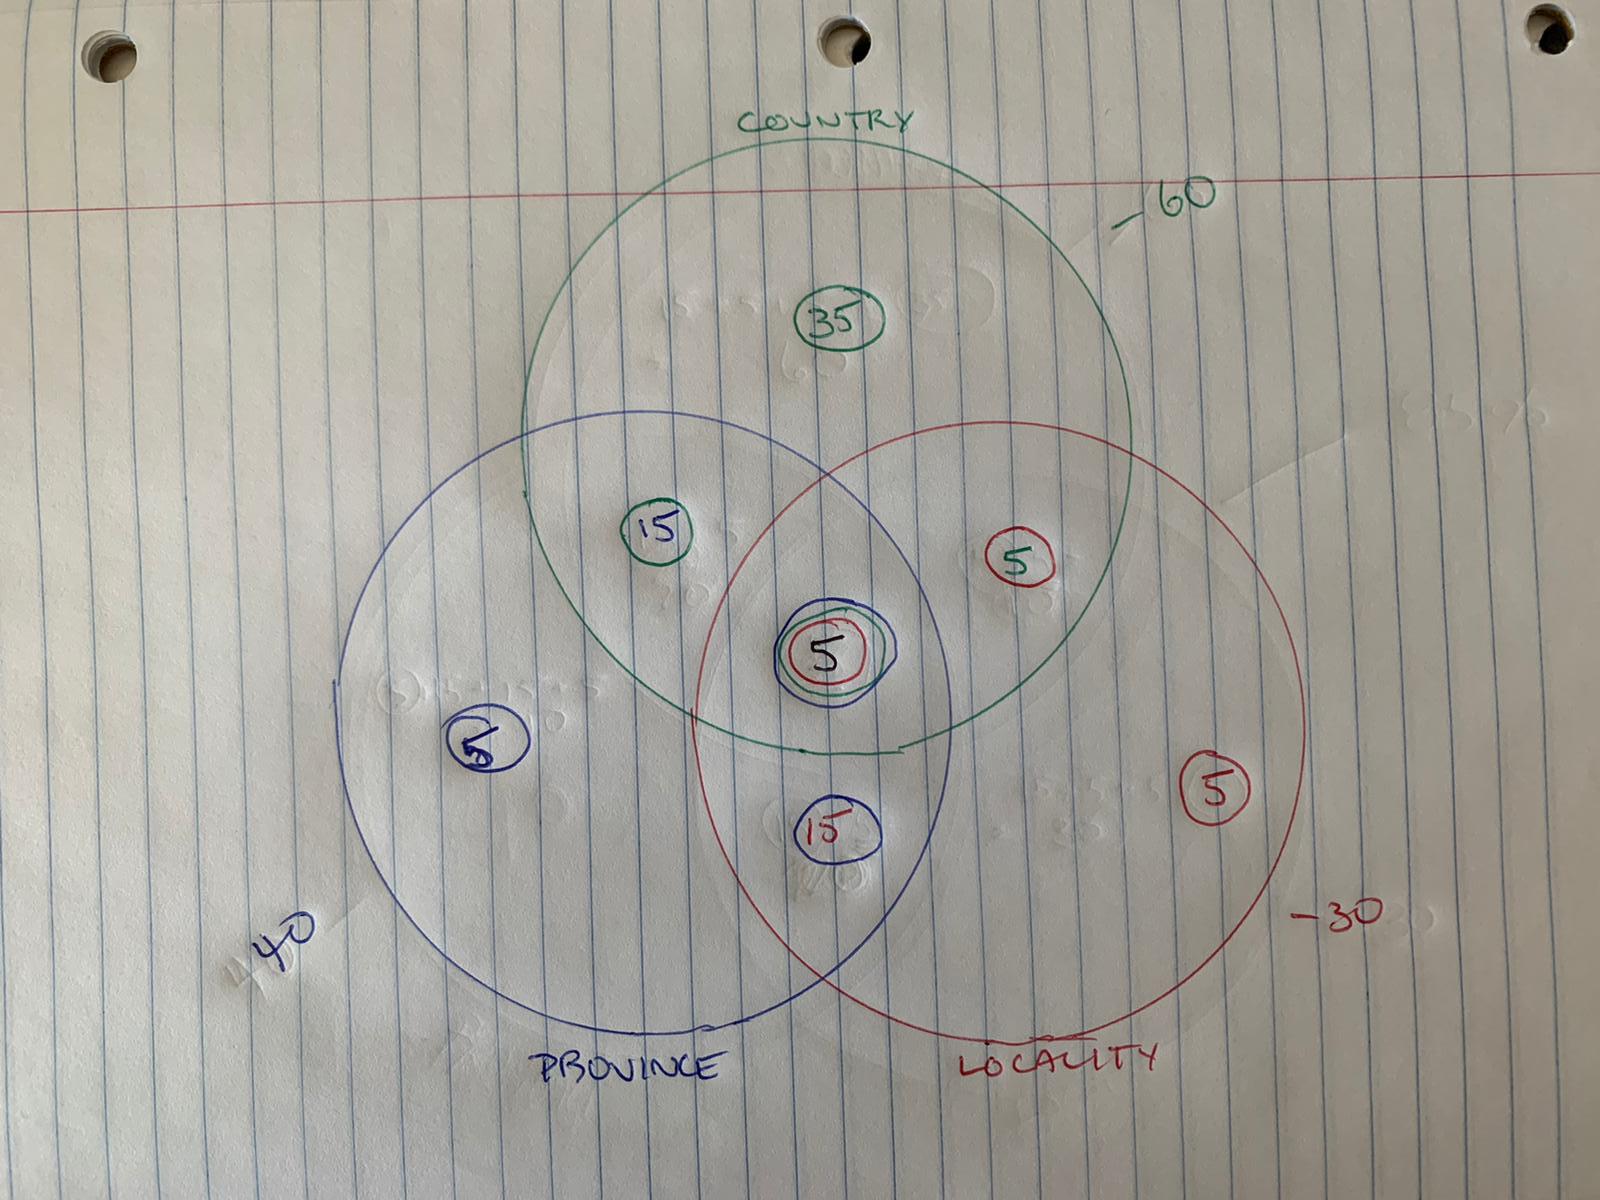 COUNTRY
-60
35
15
5
5
5
5
15
40
-30
PROVINCE
LOCALITY